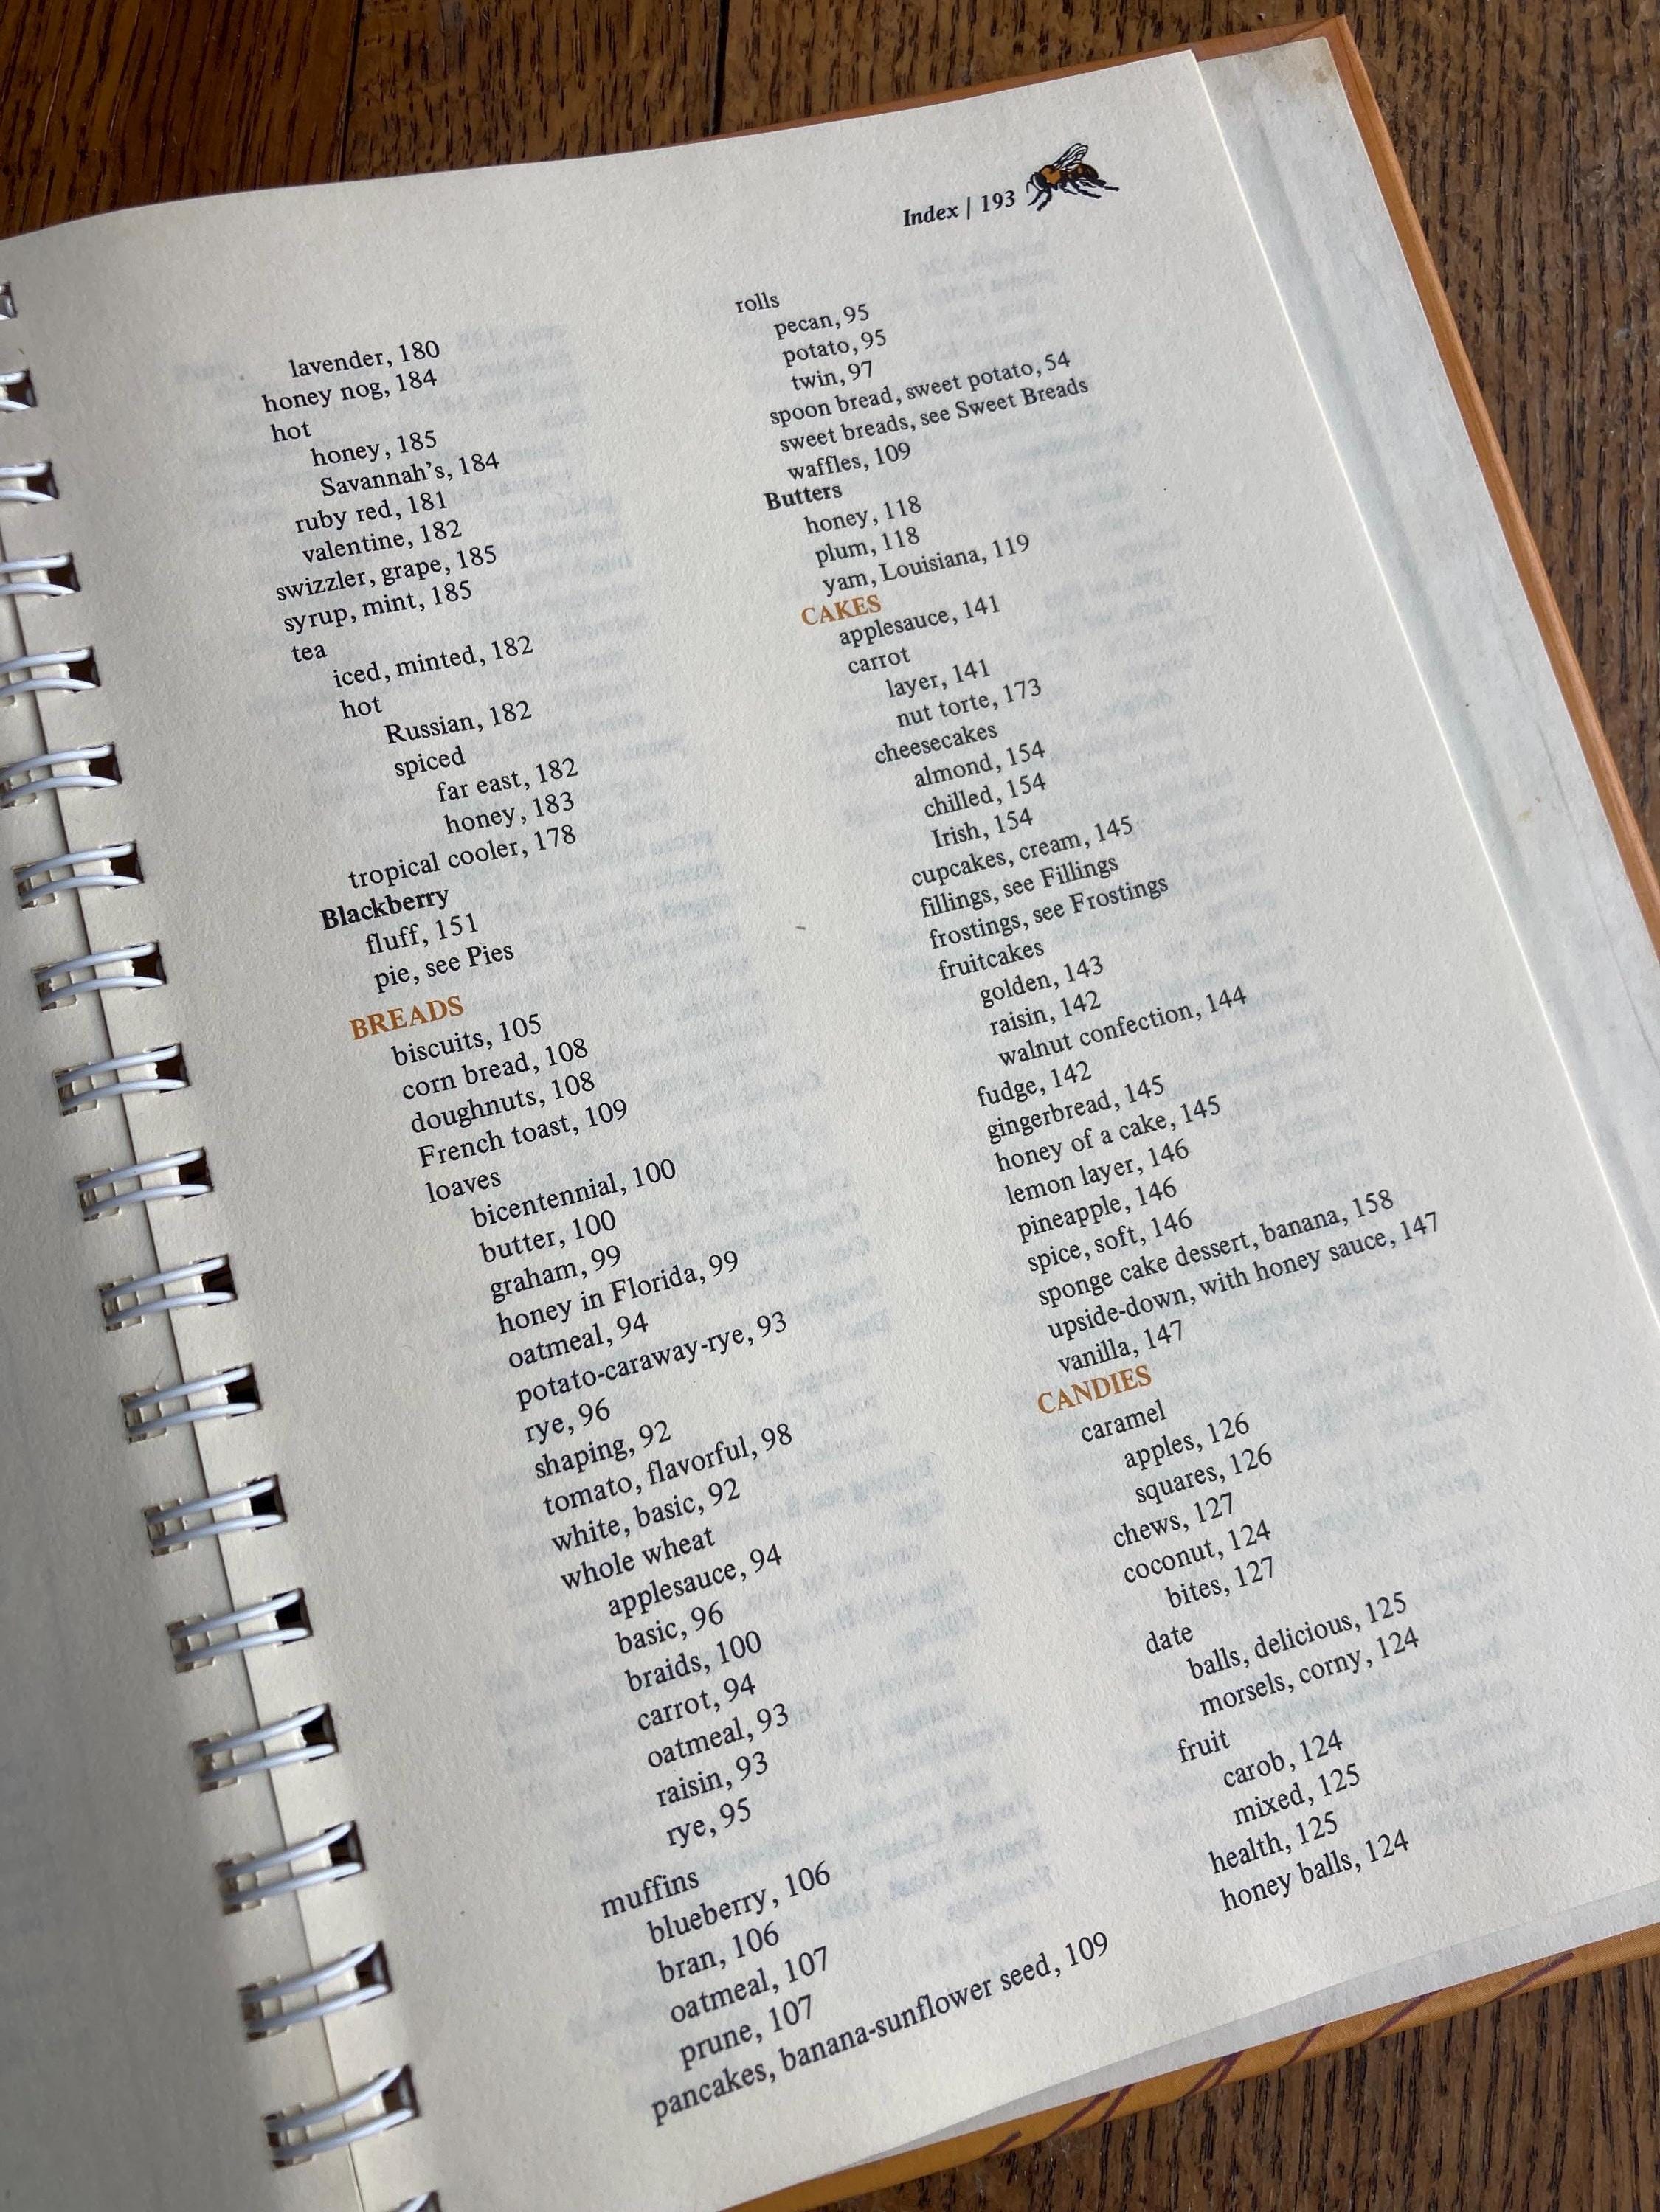 Index | 193
lavender, 180
honey nog, 184
hot
honey, 185
Savannah's, 184
ruby red, 181
valentine, 182
swizzler, grape, 185
syrup, mint, 185
tea
iced, minted, 182
hot
Russian, 182
spiced
far east, 182
honey, 183
tropical cooler, 178
Blackberry
fluff, 151
pie, see Pies
BREADS
biscuits, 105
corn bread, 108
doughnuts, 108
French toast, 109
loaves
bicentennial, 100
butter, 100
graham, 99
honey in Florida, 99
oatmeal, 94
potato-caraway-rye, 93
rye, 96
shaping, 92
tomato, flavorful, 98
white, basic, 92
whole wheat
applesauce, 94
basic, 96
braids, 100
carrot, 94
oatmeal, 93
raisin, 93
rye, 95
muffins
blueberry, 106
bran, 106
oatmeal, 107
prune, 107
pancakes, banana-sunflower seed, 109
rolls
pecan, 95
potato, 95
twin, 97
spoon bread, sweet potato, 54
sweet breads, see Sweet Breads
waffles, 109
Butters
honey, 118
plum, 118
yam, Louisiana, 119
CAKES
applesauce, 141
carrot
layer, 141
nut torte, 173
cheesecakes
almond, 154
chilled, 154
Irish, 154
cupcakes, cream, 145
fillings, see Fillings
frostings, see Frostings
fruitcakes
golden, 143
raisin, 142
walnut confection, 144
fudge, 142
gingerbread, 145
honey of a cake, 145
lemon layer, 146
pineapple, 146
spice, soft, 146
sponge cake dessert, banana, 158
upside-down, with honey sauce, 147
vanilla, 147
CANDIES
caramel
apples, 126
squares, 126
chews, 127
coconut, 124
bites, 127
date
balls, delicious, 125
morsels, corny, 124
fruit
carob, 124
mixed, 125
health, 125
honey balls, 124